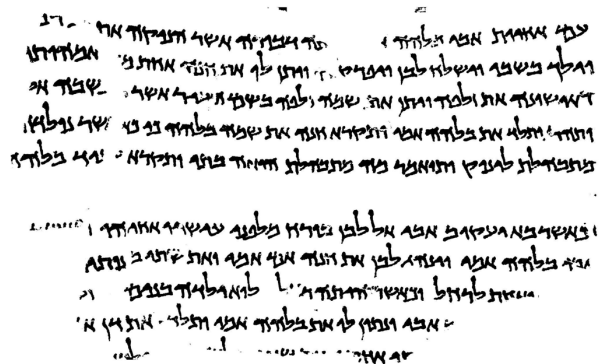 עם אחיות אבי בלהה בורה אשר היניקה את
וילך בשבי וישלח לבן ויפרק ויתן לו את חנה אחת מ אמהותי
ראישונה את זלפה ויתן את שמה זלפה בשם העיר אשר נשבה אל
ותהר ותלד את בלהה אמי ותקרא חנה את שמה בלהה כי כאשר נולדה
מתבהלת לינוק ותואמר מה מתבהלת היאה בתי ותקרא עוד בלהה
וכאשר בא יעקוב אבי אל לבן בורח מלפני עישיו אחיהו
אבי בלהה אמי וינהג לבן את חנה אם אמי ואת שתי בנותי
ואחת לרחל וכאשר היתה לוא ילדה בנים
אבי ונתון לו את בלהה אמי ותלד את דן א